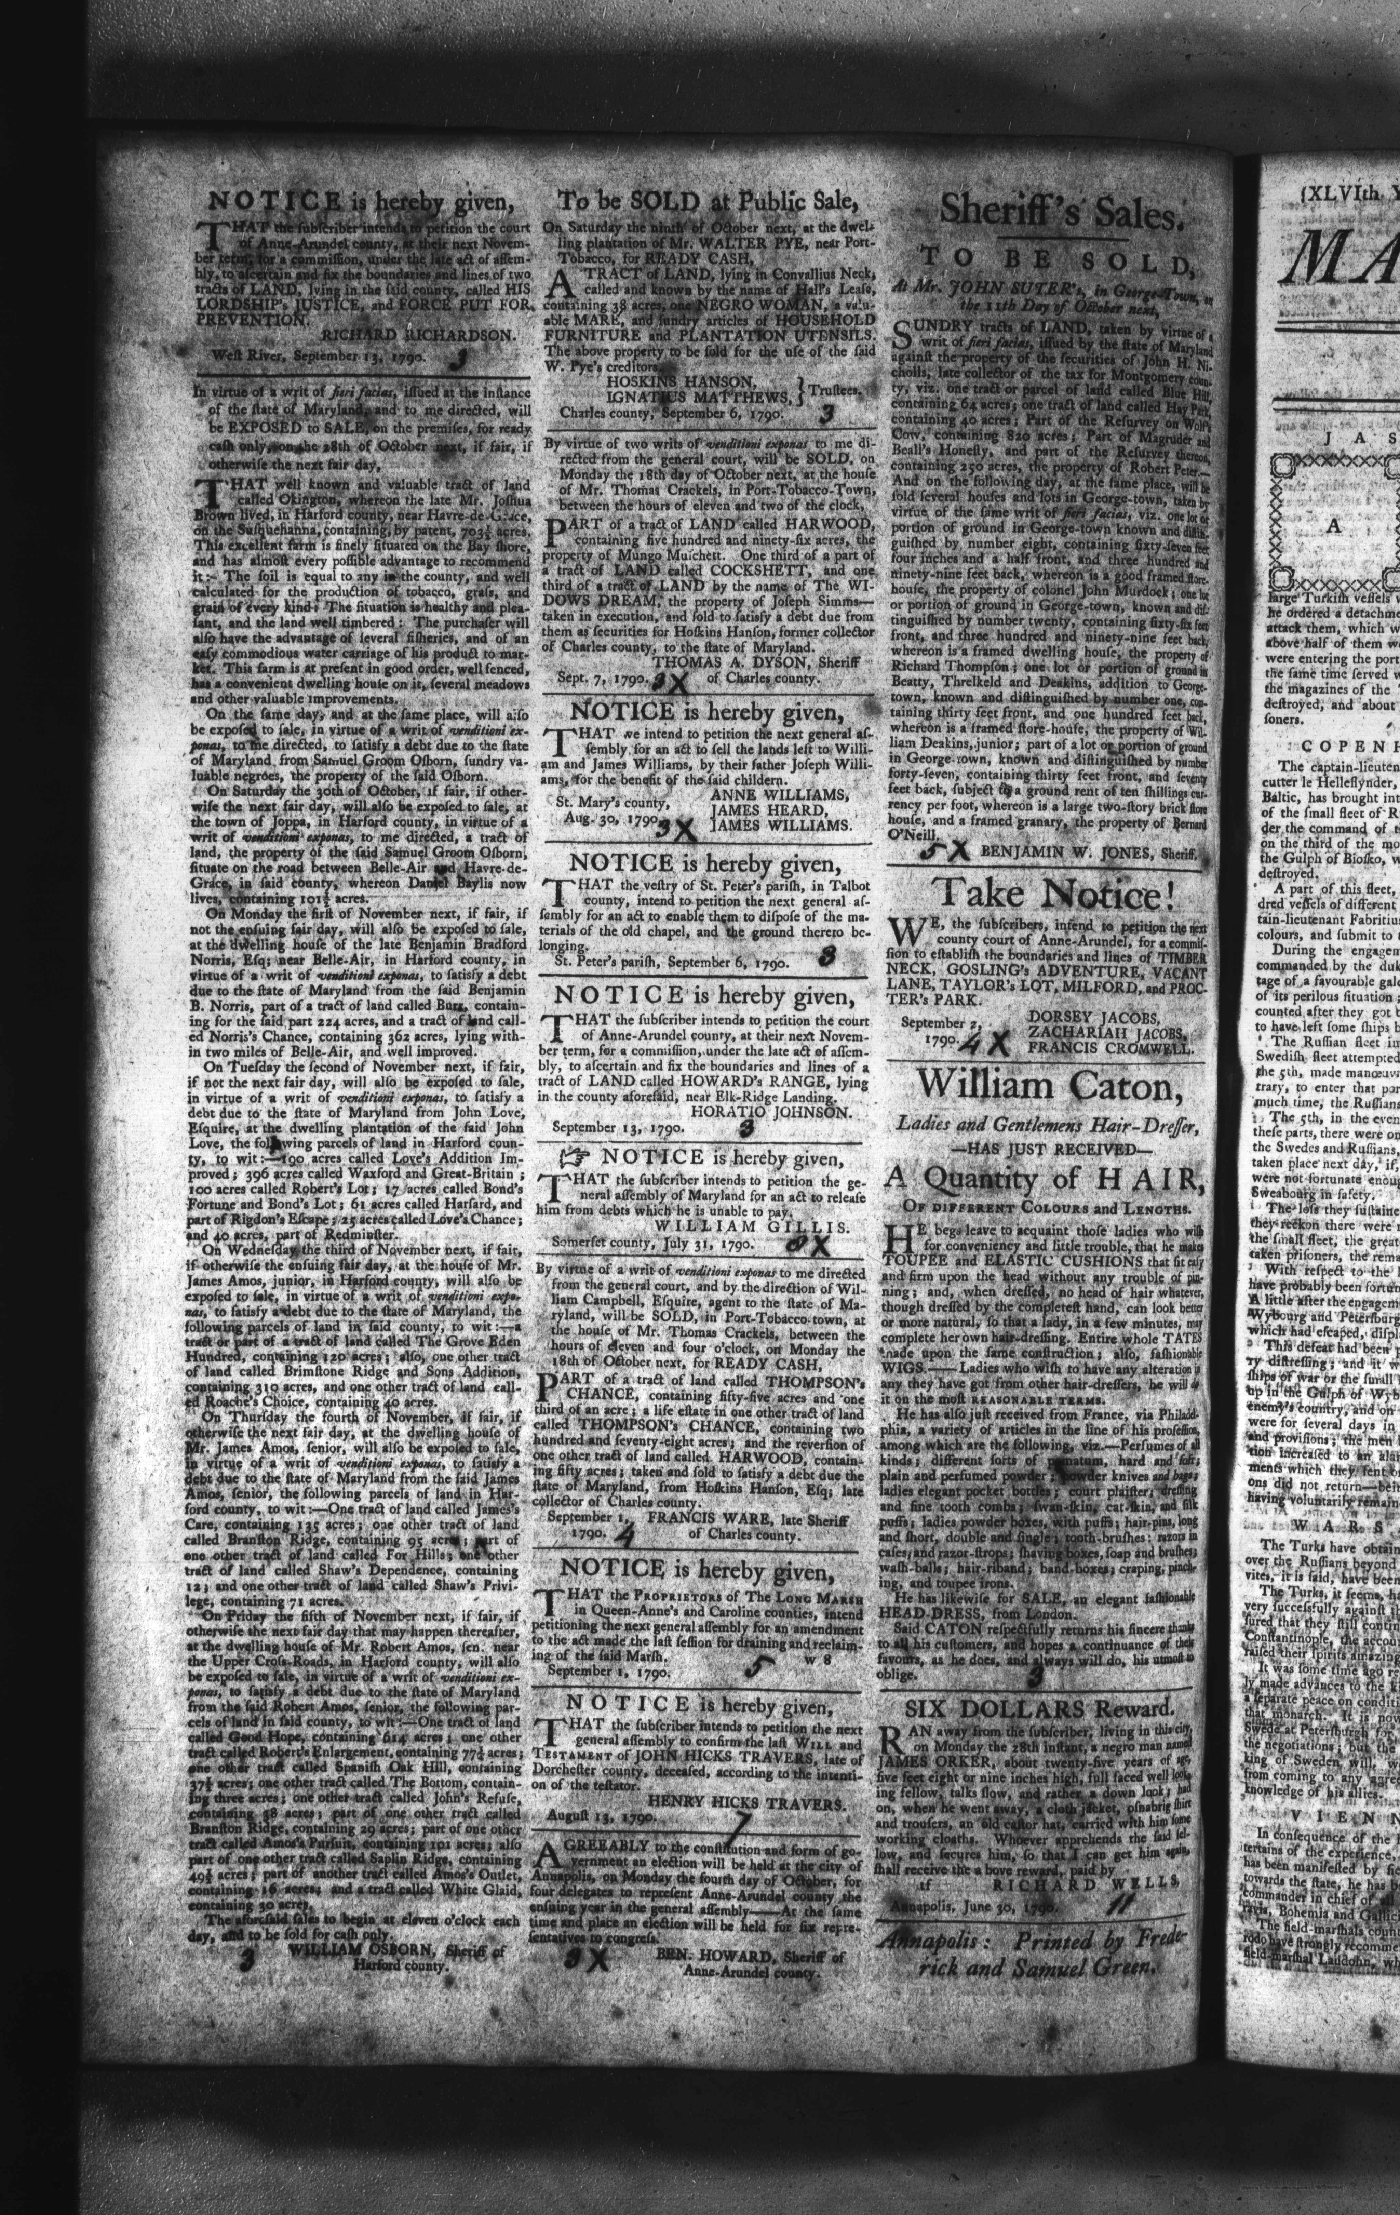 NOTICE is hereby given,
THAT the subscriber intends to petition the court
of Anne-Arundel county, at their next Novem-
ber term, for a commission, under the late act of assem-
bly, to ascertain and fix the boundaries and lines of two
tracts of LAND, lying in the said county, called HIS
LORDSHIP's JUSTICE, and FORCE PUT FOR
PREVENTION.
RICHARD RICHARDSON.
West River, September 13, 1790. 3
In virtue of a writ of fieri facias, issued at the instance
of the state of Maryland, and to me directed, will
be EXPOSED to SALE, on the premises, for ready
cash only, on the 28th of October next, if fair, if
otherwise the next fair day,
THAT well known and valuable tract of land
called Okington, whereon the late Mr. Joshua
Brown lived, in Harford county, near Havre-de-Grace,
on the Susquehanna, containing, by patent, 703½ acres.
This excellent farm is finely situated on the Bay shore,
and has almost every possible advantage to recommend
it:- The soil is equal to any in the county, and well
calculated for the production of tobacco, grass, and
grain of every kind: The situation is healthy and plea-
sant, and the land well timbered: The purchaser will
also have the advantage of several fisheries, and of an
easy commodious water carriage of his product to mar-
ket. This farm is at present in good order, well fenced,
has a convenient dwelling house on it, several meadows
and other valuable improvements.
On the same day, and at the same place, will also
be exposed to sale, in virtue of a writ of venditioni ex-
ponas, to me directed, to satisfy a debt due to the state
of Maryland from Samuel Groom Osborn, sundry va-
luable negroes, the property of the said Osborn.
On Saturday the 30th of October, if fair, if other-
wise the next fair day, will also be exposed to sale, at
the town of Joppa, in Harford county, in virtue of a
writ of venditioni exponas, to me directed, a tract of
land, the property of the said Samuel Groom Osborn,
situate on the road between Belle-Air and Havre-de-
Grace, in said county, whereon Daniel Baylis now
lives, containing 101½ acres.
On Monday the first of November next, if fair, if
not the ensuing fair day, will also be exposed to sale,
at the dwelling house of the late Benjamin Bradford
Norris, Esq; near Belle-Air, in Harford county, in
virtue of a writ of venditioni exponas, to satisfy a debt
due to the state of Maryland from the said Benjamin
B. Norris, part of a tract of land called Burr, contain-
ing for the said part 224 acres, and a tract of land call-
ed Norris's Chance, containing 362 acres, lying with-
in two miles of Belle-Air, and well improved.
On Tuesday the second of November next, if fair,
if not the next fair day, will also be exposed to sale,
in virtue of a writ of venditioni exponas, to satisfy a
debt due to the state of Maryland from John Love,
Esquire, at the dwelling plantation of the said John
Love, the following parcels of land in Harford coun-
ty, to wit:—190 acres called Love's Addition Im-
proved; 396 acres called Waxford and Great-Britain;
100 acres called Robert's Lot; 17 acres called Bond's
Fortune and Bond's Lot; 61 acres called Harfard, and
part of Rigdon's Escape; 25 acres called Love's Chance;
and 40 acres, part of Redminster.
On Wednesday the third of November next, if fair,
if otherwise the ensuing fair day, at the house of Mr.
James Amos, junior, in Harford county, will also be
exposed to sale, in virtue of a writ of venditioni expo-
nas, to satisfy a debt due to the state of Maryland, the
following parcels of land in said county, to wit:—a
tract or part of a tract of land called The Grove Eden
Hundred, containing 120 acres; also, one other tract
of land called Brimstone Ridge and Sons Addition,
containing 310 acres, and one other tract of land call-
ed Roache's Choice, containing 40 acres.
On Thursday the fourth of November, if fair, if
otherwise the next fair day, at the dwelling house of
Mr. James Amos, senior, will also be exposed to sale,
in virtue of a writ of venditioni exponas, to satisfy a
debt due to the state of Maryland from the said James
Amos, senior, the following parcels of land in Har-
ford county, to wit:—One tract of land called James's
Care, containing 135 acres; one other tract of land
called Branston Ridge, containing 95 acres; part of
one other tract of land called For Hills; one other
tract of land called Shaw's Dependence, containing
12; and one other tract of land called Shaw's Privi-
lege, containing 71 acres.
On Friday the fifth of November next, if fair, if
otherwise the next fair day that may happen thereafter,
at the dwelling house of Mr. Robert Amos, sen. near
the Upper Cross-Roads, in Harford county, will also
be exposed to sale, in virtue of a writ of venditioni ex-
ponas, to satisfy a debt due to the state of Maryland
from the said Robert Amos, senior, the following par-
cels of land in said county, to wit:—One tract of land
called Good Hope, containing 614 acres; one other
tract called Robert's Enlargement, containing 77½ acres;
one other tract called Spanish Oak Hill, containing
37½ acres; one other tract called The Bottom, contain-
ing three acres; one other tract called John's Refuse,
containing 38 acres; part of one other tract called
Branston Ridge, containing 29 acres; part of one other
tract called Amos's Pursuit, containing 101 acres; also
part of one other tract called Saplin Ridge, containing
49½ acres; part of another tract called Amos's Outlet,
containing 16 acres; and a tract called White Glaid,
containing 30 acres.
The aforesaid sales to begin at eleven o'clock each
day, and to be sold for cash only.
3 WILLIAM OSBORN, Sheriff of
Harford county.
To be SOLD at Public Sale,
On Saturday the ninth of October next, at the dwel-
ling plantation of Mr. WALTER PYE, near Port-
Tobacco, for READY CASH,
A TRACT of LAND, lying in Convallius Neck,
called and known by the name of Hall's Lease,
containing 38 acres, one NEGRO WOMAN, a valu-
able MARE, and sundry articles of HOUSEHOLD
FURNITURE and PLANTATION UTENSILS.
The above property to be sold for the use of the said
W. Pye's creditors.
HOSKINS HANSON,
IGNATIUS MATTHEWS, } Trustees.
Charles county, September 6, 1790. 3
By virtue of two writs of venditioni exponas to me di-
rected from the general court, will be SOLD, on
Monday the 18th day of October next, at the house
of Mr. Thomas Crackels, in Port-Tobacco-Town,
between the hours of eleven and two of the clock,
PART of a tract of LAND called HARWOOD,
containing five hundred and ninety-six acres, the
property of Mungo Muschett. One third of a part of
a tract of LAND called COCKSHETT, and one
third of a tract of LAND by the name of The WI-
DOWS DREAM, the property of Joseph Simms—
taken in execution, and sold to satisfy a debt due from
them as securities for Hoskins Hanson, former collector
of Charles county, to the state of Maryland.
THOMAS A. DYSON, Sheriff
Sept. 7, 1790. 3X of Charles county.
NOTICE is hereby given,
THAT we intend to petition the next general as-
sembly for an act to sell the lands left to Willi-
am and James Williams, by their father Joseph Willi-
ams, for the benefit of the said childern.
St. Mary's county, ANNE WILLIAMS,
Aug. 30, 1790. 3X JAMES HEARD,
JAMES WILLIAMS.
NOTICE is hereby given,
THAT the vestry of St. Peter's parish, in Talbot
county, intend to petition the next general as-
sembly for an act to enable them to dispose of the ma-
terials of the old chapel, and the ground thereto be-
longing.
St. Peter's parish, September 6, 1790. 3
NOTICE is hereby given,
THAT the subscriber intends to petition the court
of Anne-Arundel county, at their next Novem-
ber term, for a commission, under the late act of assem-
bly, to ascertain and fix the boundaries and lines of a
tract of LAND called HOWARD's RANGE, lying
in the county aforesaid, near Elk-Ridge Landing.
HORATIO JOHNSON.
September 13, 1790. 3
☞ NOTICE is hereby given,
THAT the subscriber intends to petition the ge-
neral assembly of Maryland for an act to release
him from debts which he is unable to pay.
WILLIAM GILLIS.
Somerset county, July 31, 1790. 8X
By virtue of a writ of venditioni exponas to me directed
from the general court, and by the direction of Wil-
liam Campbell, Esquire, agent to the state of Ma-
ryland, will be SOLD, in Port-Tobacco-town, at
the house of Mr. Thomas Crackels, between the
hours of eleven and four o'clock, on Monday the
18th of October next, for READY CASH,
PART of a tract of land called THOMPSON's
CHANCE, containing fifty-five acres and one
third of an acre; a life estate in one other tract of land
called THOMPSON's CHANCE, containing two
hundred and seventy-eight acres; and the reversion of
one other tract of land called HARWOOD, contain-
ing fifty acres; taken and sold to satisfy a debt due the
state of Maryland, from Hoskins Hanson, Esq; late
collector of Charles county.
September 1, FRANCIS WARE, late Sheriff
1790. 4 of Charles county.
NOTICE is hereby given,
THAT the PROPRIETORS of The LONG MARSH
in Queen-Anne's and Caroline counties, intend
petitioning the next general assembly for an amendment
to the act made the last session for draining and reclaim-
ing of the said Marsh. w 8
September 1, 1790. 5
NOTICE is hereby given,
THAT the subscriber intends to petition the next
general assembly to confirm the last WILL and
TESTAMENT of JOHN HICKS TRAVERS, late of
Dorchester county, deceased, according to the intenti-
on of the testator.
HENRY HICKS TRAVERS.
August 13, 1790. 7
AGREEABLY to the constitution and form of go-
vernment an election will be held at the city of
Annapolis, on Monday the fourth day of October, for
four delegates to represent Anne-Arundel county the
ensuing year in the general assembly——At the same
time and place an election will be held for six repre-
sentatives to congress.
3X BEN. HOWARD, Sheriff of
Anne-Arundel county.
Sheriff's Sales.
TO BE SOLD,
At Mr. JOHN SUTER's, in George-Town, on
the 11th Day of October next,
SUNDRY tracts of LAND, taken by virtue of a
writ of fieri facias, issued by the state of Maryland
against the property of the securities of John H. Ni-
cholls, late collector of the tax for Montgomery coun-
ty, viz. one tract or parcel of land called Blue Hill,
containing 64 acres; one tract of land called Hay Park,
containing 40 acres; Part of the Resurvey on Wolf's
Cow, containing 820 acres; Part of Magruder and
Beall's Honesty, and part of the Resurvey thereon,
containing 250 acres, the property of Robert Peter.—
And on the following day, at the same place, will be
sold several houses and lots in George-town, taken by
virtue of the same writ of fieri facias, viz. one lot or
portion of ground in George-town known and distin-
guished by number eight, containing sixty-seven feet
four inches and a half front, and three hundred and
ninety-nine feet back, whereon is a good framed store-
house, the property of colonel John Murdock; one lot
or portion of ground in George-town, known and dis-
tinguished by number twenty, containing sixty-six feet
front, and three hundred and ninety-nine feet back,
whereon is a framed dwelling house, the property of
Richard Thompson; one lot or portion of ground in
Beatty, Threlkeld and Deakins, addition to George-
town, known and distinguished by number one, con-
taining thirty feet front, and one hundred feet back,
whereon is a framed store-house, the property of Wil-
liam Deakins, junior; part of a lot or portion of ground
in George-town, known and distinguished by number
forty-seven, containing thirty feet front, and seventy
feet back, subject to a ground rent of ten shillings cur-
rency per foot, whereon is a large two-story brick store
house, and a framed granary, the property of Bernard
O'Neill.
5X BENJAMIN W. JONES, Sheriff.
Take Notice!
WE, the subscribers, intend to petition the next
county court of Anne-Arundel, for a commis-
sion to establish the boundaries and lines of TIMBER
NECK, GOSLING's ADVENTURE, VACANT
LANE, TAYLOR's LOT, MILFORD, and PROC-
TER's PARK.
September 2, DORSEY JACOBS,
1790. 4X ZACHARIAH JACOBS,
FRANCIS CROMWELL.
William Caton,
Ladies and Gentlemens Hair-Dresser,
—HAS JUST RECEIVED—
A Quantity of HAIR,
OF DIFFERENT COLOURS and LENGTHS.
HE begs leave to acquaint those ladies who wish
for conveniency and little trouble, that he makes
TOUPEE and ELASTIC CUSHIONS that sit easy
and firm upon the head without any trouble of pin-
ning; and, when dressed, no head of hair whatever,
though dressed by the completest hand, can look better
or more natural, so that a lady, in a few minutes, may
complete her own hair-dressing. Entire whole TATES
made upon the same construction; also, fashionable
WIGS.——Ladies who wish to have any alteration in
any they have got from other hair-dressers, he will do
it on the most REASONABLE TERMS.
He has also just received from France, via Philadel-
phia, a variety of articles in the line of his profession,
among which are the following, viz.—Perfumes of all
kinds; different sorts of pomatum, hard and soft;
plain and perfumed powder; powder knives and bags;
ladies elegant pocket bottles; court plaister; dressing
and fine tooth combs; swan-skin, cat-skin, and silk
puffs; ladies powder boxes, with puffs; hair-pins, long
and short, double and single; tooth-brushes: razors in
cases, and razor-strops; shaving boxes, soap and brushes;
wash-balls; hair-riband; band-boxes; craping, pinch-
ing, and toupee irons.
He has likewise for SALE, an elegant fashionable
HEAD-DRESS, from London.
Said CATON respectfully returns his sincere thanks
to all his customers, and hopes a continuance of their
favours, as he does, and always will do, his utmost to
oblige. 3
SIX DOLLARS Reward.
RAN away from the subscriber, living in this city,
on Monday the 28th instant, a negro man named
JAMES ORKER, about twenty-five years of age,
five feet eight or nine inches high, full faced well look-
ing fellow, talks slow, and rather a down look; had
on, when he went away, a cloth jacket, osnabrig shirt
and trousers, an old castor hat, carried with him some
working cloaths. Whoever apprehends the said fel-
low, and secures him, so that I can get him again,
shall receive the above reward, paid by
tf RICHARD WELLS.
Annapolis, June 30, 1790. 11
Annapolis: Printed by Frede-
rick and Samuel Green.
(XLVIth
MA
J A S
A
large Turkish vessels
he ordered a detachme
attack them, which w
above half of them we
were entering the port
the same time served w
the magazines of the
destroyed, and about
soners.
COPENH
The captain-lieuten
cutter le Helleflynder,
Baltic, has brought int
of the small fleet of R
der the command of t
on the third of the mo
the Gulph of Biosko, w
destroyed.
A part of this fleet,
dred vessels of different
tain-lieutenant Fabritiu
colours, and submit to
During the engagem
commanded by the duk
tage of a favourable gale
of its perilous situation;
counted after they got b
to have left some ships b
The Russian fleet in
Swedish fleet attempted
the 5th, made manœuv
trary, to enter that por
much time, the Russians
The 5th, in the even
these parts, there were on
the Swedes and Russians,
taken place next day, if
were not fortunate enoug
Sweabourg in safety.
The loss they sustaine
they reckon there were
the small fleet, the great
taken prisoners, the rema
With respect to the
have probably been fortun
A little after the engagem
Wybourg and Petersburg
which had escaped, disp
This defeat had been p
ry distressing; and it w
ships of war or the small
up in the Gulph of Wyb
enemy's country, and on
were for several days in
and provisions; the men
tion increased to an alar
ments which they sent
ons did not return—bein
having voluntarily remain
WARS
The Turks have obtain
over the Russians beyond
vites, it is said, have been
The Turks, it seems, h
very successfully against
sured that they still contin
Constantinople, the accou
raised their spirits amazing
It was some time ago re
ly made advances to the k
a separate peace on conditi
that monarch. It is now
Swede at Petersburgh for
the negotiations; but the
king of Sweden, will, w
from coming to any agree
knowledge of his allies.
VIENN
In consequence of the
tertains of the experience,
has been manifested by fie
towards the state, he has b
commander in chief of all
ravia, Bohemia and Gallici
The field-marshals count
rodo have strongly recomme
field-marshal Laudohn, wh